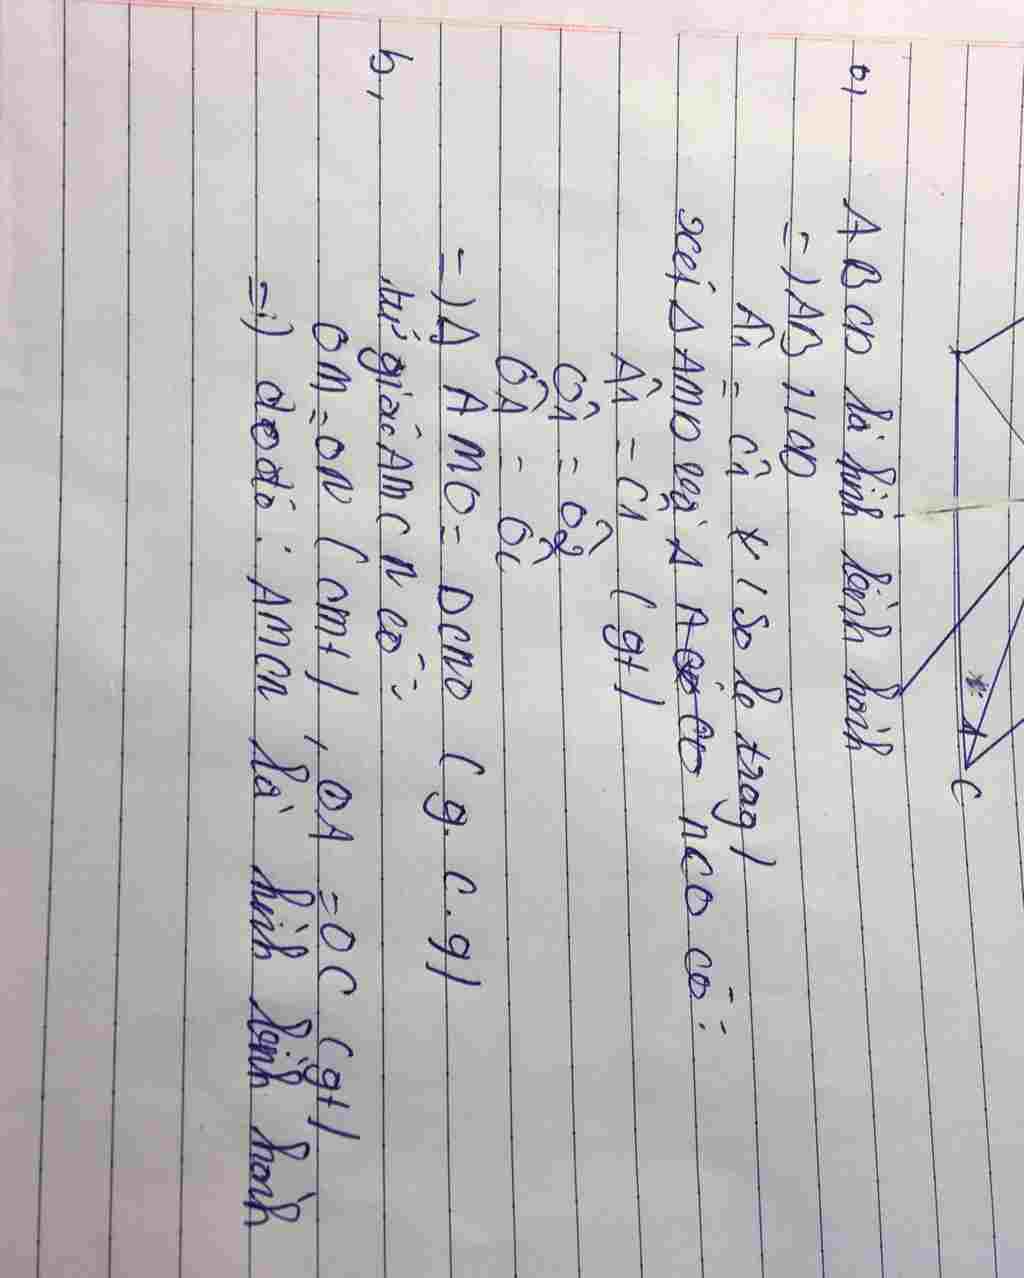 C
a) ABCD là hình bình hành
=) AB // CD
Â1 = Ĉ1 (so le trog)
xét Δ AMO và Δ NCO có :
Â1 = Ĉ1 (gt)
Ô1 = Ô2
ÔA = ÔC
=) Δ AMO = DCNO (g.c.g)
b, tứ giác AMCN có :
OM = ON (cmt), OA = OC (gt)
=) do đó : AMCN là hình bình hành